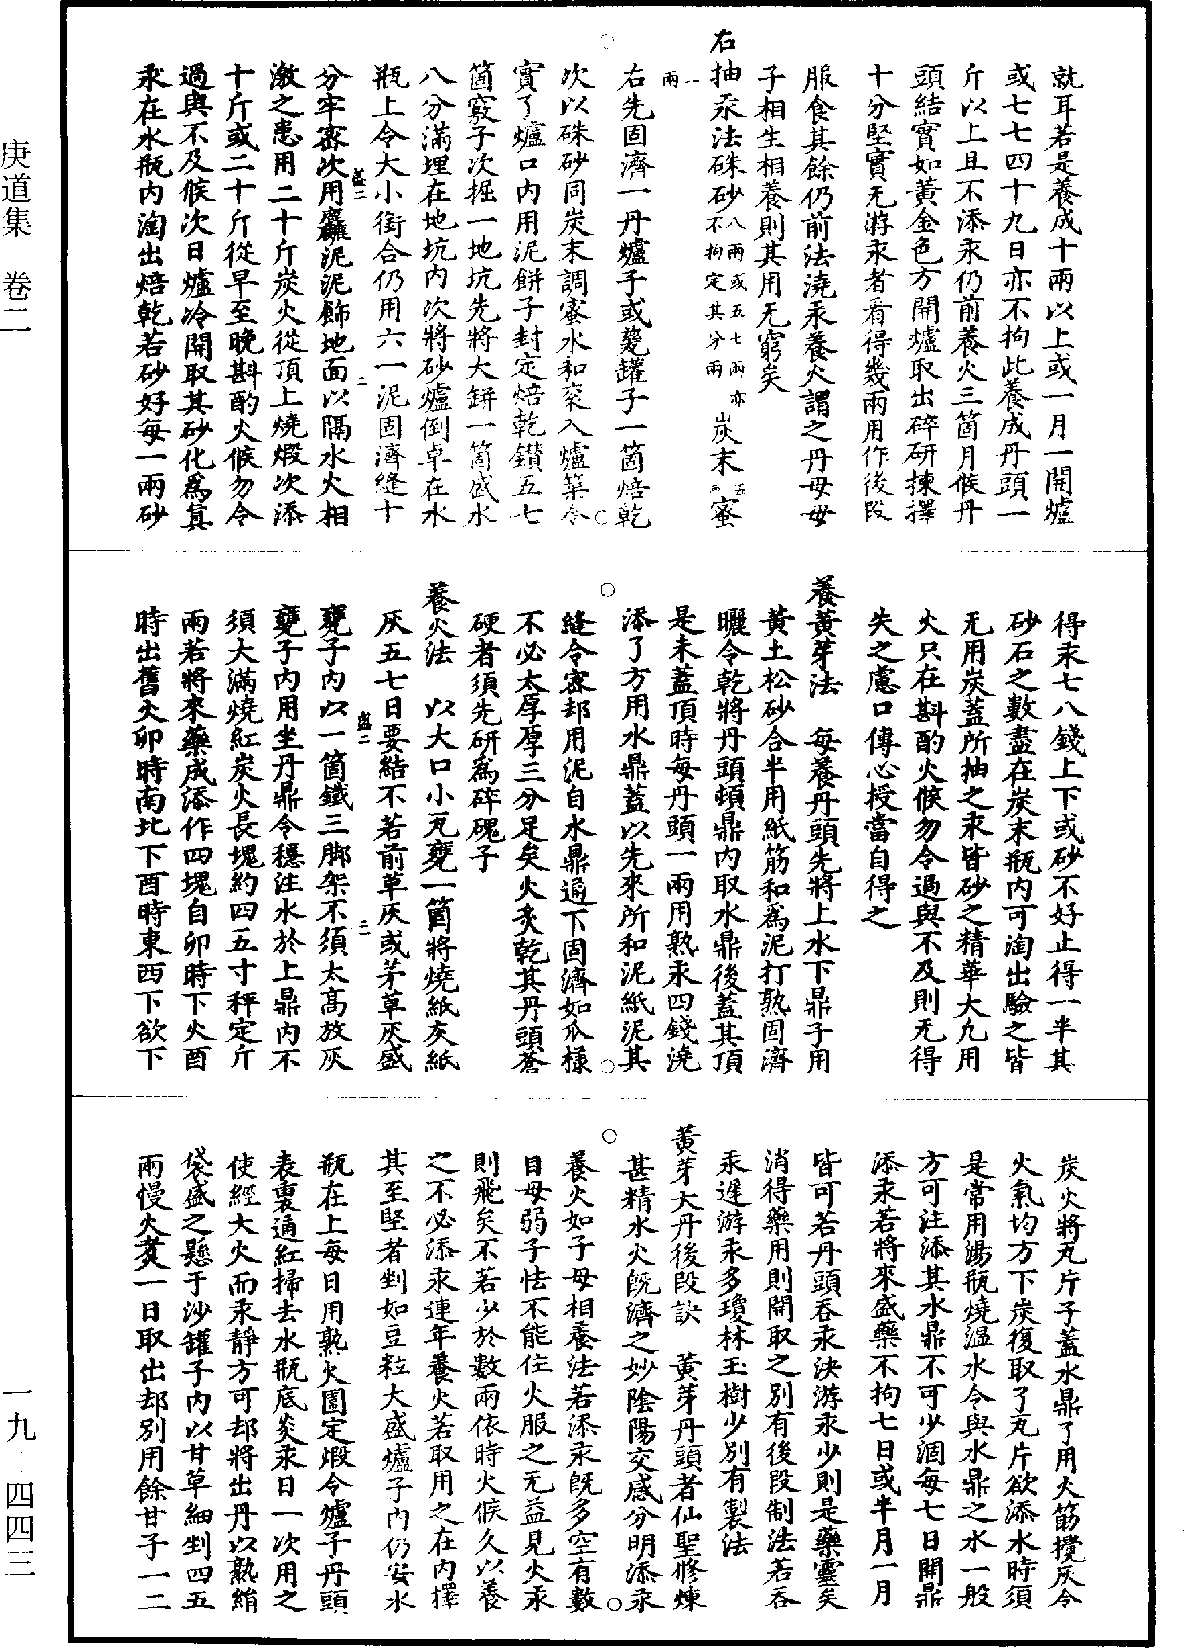 就耳若是養成十兩以上或一月一開爐
或七七四十九日亦不拘此養成丹頭一
斤以上且不添汞仍前養火三箇月候丹
頭結實如黃金色方開爐取出碎研揀擇
十分堅實无游汞者看得幾兩用作後段
服食其餘仍前法澆汞養火謂之丹母母
子相生相養則其用无窮矣
右抽汞法硃砂八兩或五七兩亦不拘定其分兩 炭末五兩 蜜
一兩
右先固濟一丹爐子或甆罐子一箇焙乾
次以硃砂同炭末調蜜水和衮入爐築令
實了爐口內用泥餅子封定焙乾鑽五七
箇竅子次掘一地坑先將大缾一箇盛水
八分滿埋在地坑內次將砂爐倒卓在水
瓶上令大小銜合仍用六一泥固濟縫十
分牢密次用麤泥泥飾地面以隔水火相
激之患用二十斤炭火從頂上燒煅次添
十斤或二十斤從早至晚斟酌火候勿令
過與不及候次日爐冷開取其砂化為真
汞在水瓶內淘出焙乾若砂好每一兩砂
得汞七八錢上下或砂不好止得一半其
砂石之數盡在炭末瓶內可淘出驗之皆
无用炭蓋所抽之汞皆砂之精華大凡用
火只在斟酌火候勿令過與不及則无得
失之慮口傳心授當自得之
養黃芽法 每養丹頭先將上水下鼎子用
黃土松砂合半用紙筋和為泥打熟固濟
曬令乾將丹頭頓鼎內取水鼎後蓋其頂
是未蓋頂時每丹頭一兩用熟汞四錢澆
添了方用水鼎蓋以先來所和泥紙泥其
縫令密却用泥自水鼎通下固濟如瓜樣
不必太厚厚三分足矣火炙乾其丹頭蒼
硬者須先研為碎磈子
養火法 以大口小瓦甕一箇將燒紙灰紙
灰五七日要結不若前草灰或茅草灰盛
甕子內以一箇鐵三脚架不須太高放灰
甕子內用坐丹鼎令穩注水於上鼎內不
須大滿燒紅炭火長塊約四五寸秤定斤
兩若將來藥成添作四塊自卯時下火酉
時出舊火卯時南北下酉時東西下欲下
炭火將瓦片子蓋水鼎了用火筋攪灰令
火氣均方下炭復取了瓦片欲添水時須
是常用湯瓶燒溫水令與水鼎之水一般
方可注添其水鼎不可少涸每七日開鼎
添汞若將來盛藥不拘七日或半月一月
皆可若丹頭吞汞決游汞少則是藥靈矣
消得藥用則開取之別有後段制法若吞
汞遲游汞多瓊林玉樹少別有製法
黃芽大丹後段訣 黃芽丹頭者仙聖修煉
甚精水火旣濟之妙陰陽交感分明添汞
養火如子母相養法若添汞旣多空有數
目母弱子怯不能住火服之无益見火汞
則飛矣不若少於數兩依時火候久以養
之不必添汞連年養火若取用之在內擇
其至堅者剉如豆粒大盛爐子內仍安水
瓶在上每日用熟火圍定煅令爐子丹頭
表裏通紅掃去水瓶底炎汞日一次用之
使經大火而汞靜方可却將出丹以熟絹
袋盛之懸于沙罐子內以甘草細剉四五
兩慢火煑一日取出却別用餘甘子一二
庚道集 卷二
一九 四四三
盛二
二
盛二
二